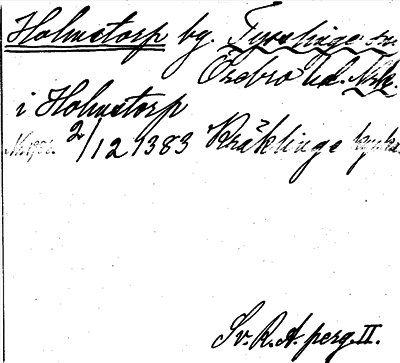 Holmstorp by. Tysslinge sn.
Örebro hd. Nrk.
i Holmstorp
2/12 1383 Kräklinge kyrka
Sv. R. A. perg. II.